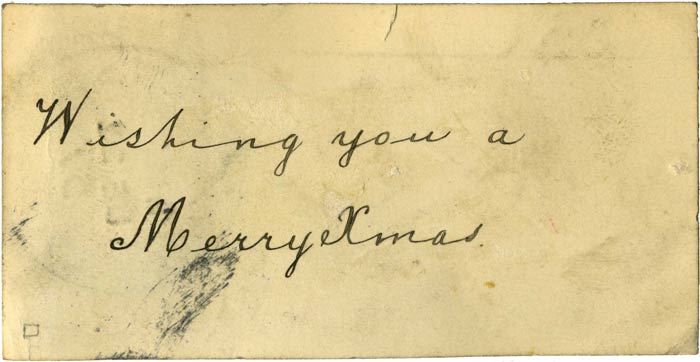 Wishing you a
Merry Xmas.